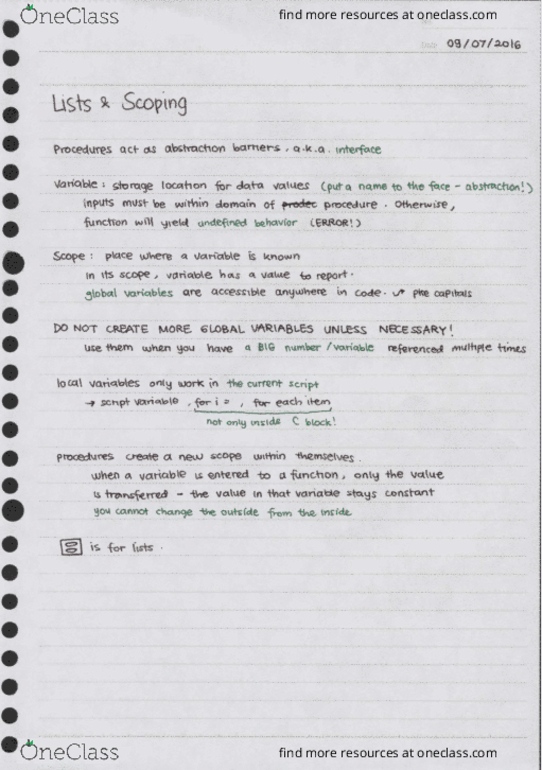 OneClass find more resources at oneclass.com
09/07/2016
Lists & Scoping
Procedures act as abstraction barriers. a.k.a. interface
Variable: storage location for data values (put a name to the face - abstraction!)
inputs must be within domain of prodec procedure. Otherwise,
function will yield undefined behavior (ERROR!)
Scope: place where a variable is known
in its scope, variable has a value to report.
global variables are accessible anywhere in code.
capitals
DO NOT CREATE MORE GLOBAL VARIABLES UNLESS NECESSARY!
use them when you have a BIG number/variable referenced multiple times
local variables only work in the current script
→ script variable, for i = , for each item
not only inside C block!
procedures create a new scope within themselves.
when a variable is entered to a function, only the value
is transferred - the value in that variable stays constant
you cannot change the outside from the inside
is for lists.
OneClass find more resources at oneclass.com